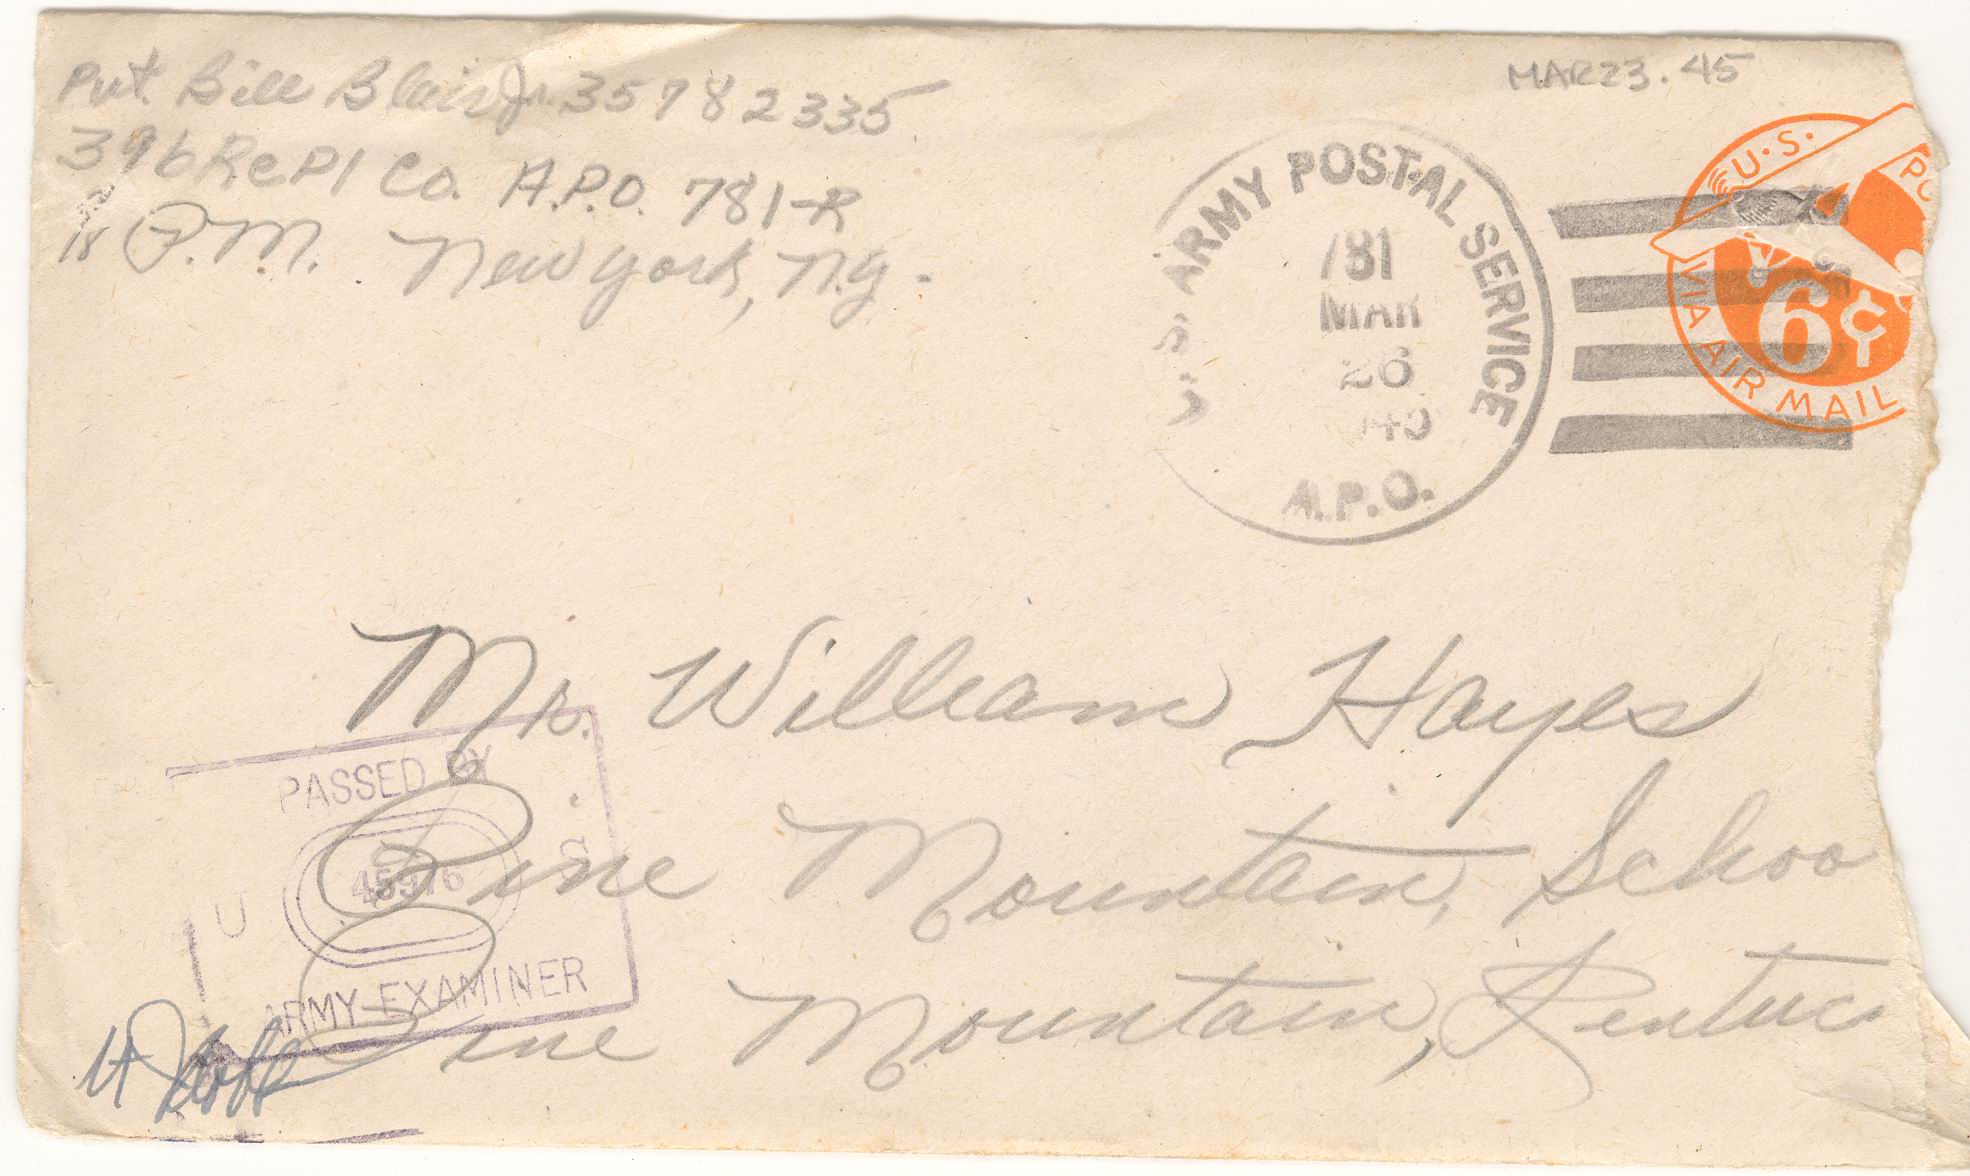 Pvt. Bill Blair Jr. 35782335
396 Repl Co. A.P.O. 781-R
P.M. New York, N.Y.
MAR 23. 45
ARMY POSTAL SERVICE
781
MAR
26
A.P.O.
U.S. PO
VIA AIR MAIL
6¢
Mr. William Hayes
Pine Mountain, Schoo
Pine Mountain, Kentuc
PASSED BY
U S
ARMY EXAMINER